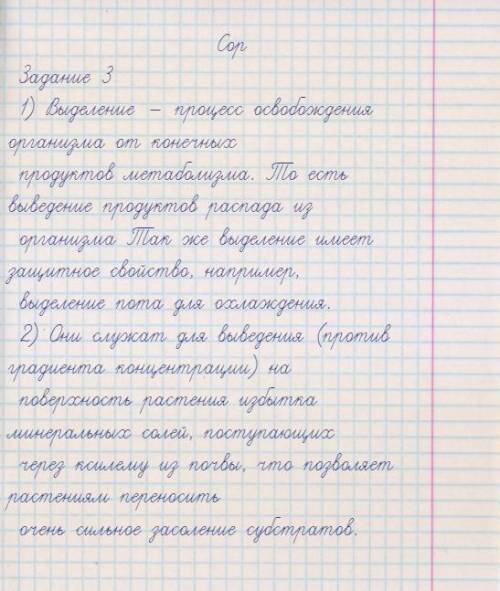 Сор
Задание 3
1) Выделение – процесс освобождения
организма от конечных
продуктов метаболизма. То есть
выведение продуктов распада из
организма Так же выделение имеет
защитное свойство, например,
выделение пота для охлаждения.
2) Они служат для выведения (против
градиента концентрации) на
поверхность растения избытка
минеральных солей, поступающих
через ксилему из почвы, что позволяет
растениям переносить
очень сильное засоление субстратов.